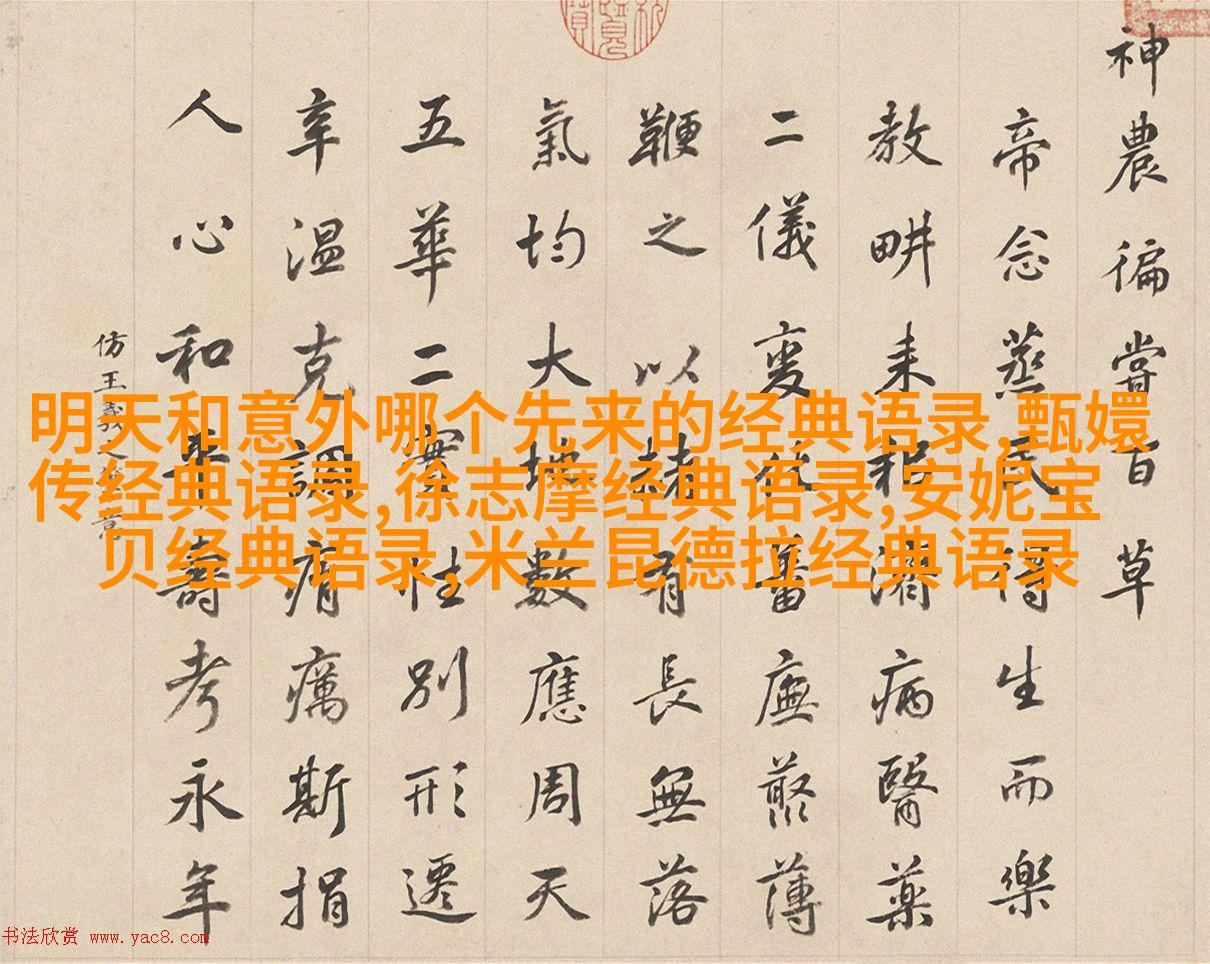 神農徧嘗百草
帝念蒸民得生而樂
教畊耒耜濟病醫藥
二儀變化蕃廡藂薄
鞭之以赭有長無落
氣均大地數應周天
五華二實性別形遷
辛温克調痟癘斯捐
人心和平壽考永年
仿王羲之章
明天和意外哪个先来的经典语录,甄嬛
传经典语录,徐志摩经典语录,安妮宝
贝经典语录,米兰昆德拉经典语录
书法欣赏 www.yac8.com